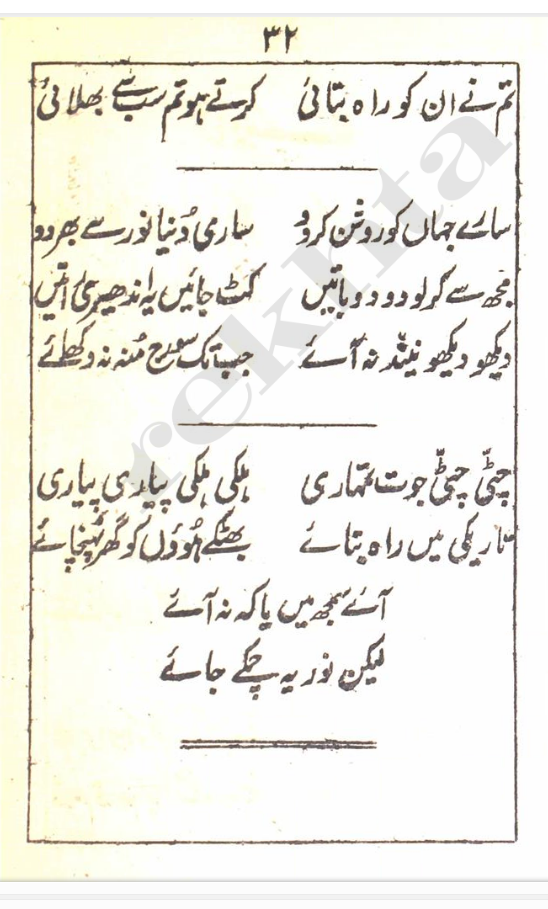 ۳۲
تم نے ان کو راہ بتائی کرتے ہو تم سب سے بھلائی
سارے جہاں کو روشن کردو ساری دُنیا نور سے بھر دو
مجھ سے کرلو دو دو باتیں کٹ جائیں یہ اندھیری راتیں
دیکھو دیکھو نیند نہ آئے جب تک سورج مُنہ نہ دکھلائے
چٹّی چٹّی جوت تمہاری ہلکی ہلکی پیاری پیاری
تاریکی میں راہ بتائے بھٹکے ہوؤں کو گھر پہنچائے
آئے سمجھ میں یا کہ نہ آئے
لیکن نور یہ چمکے جائے
rekhta